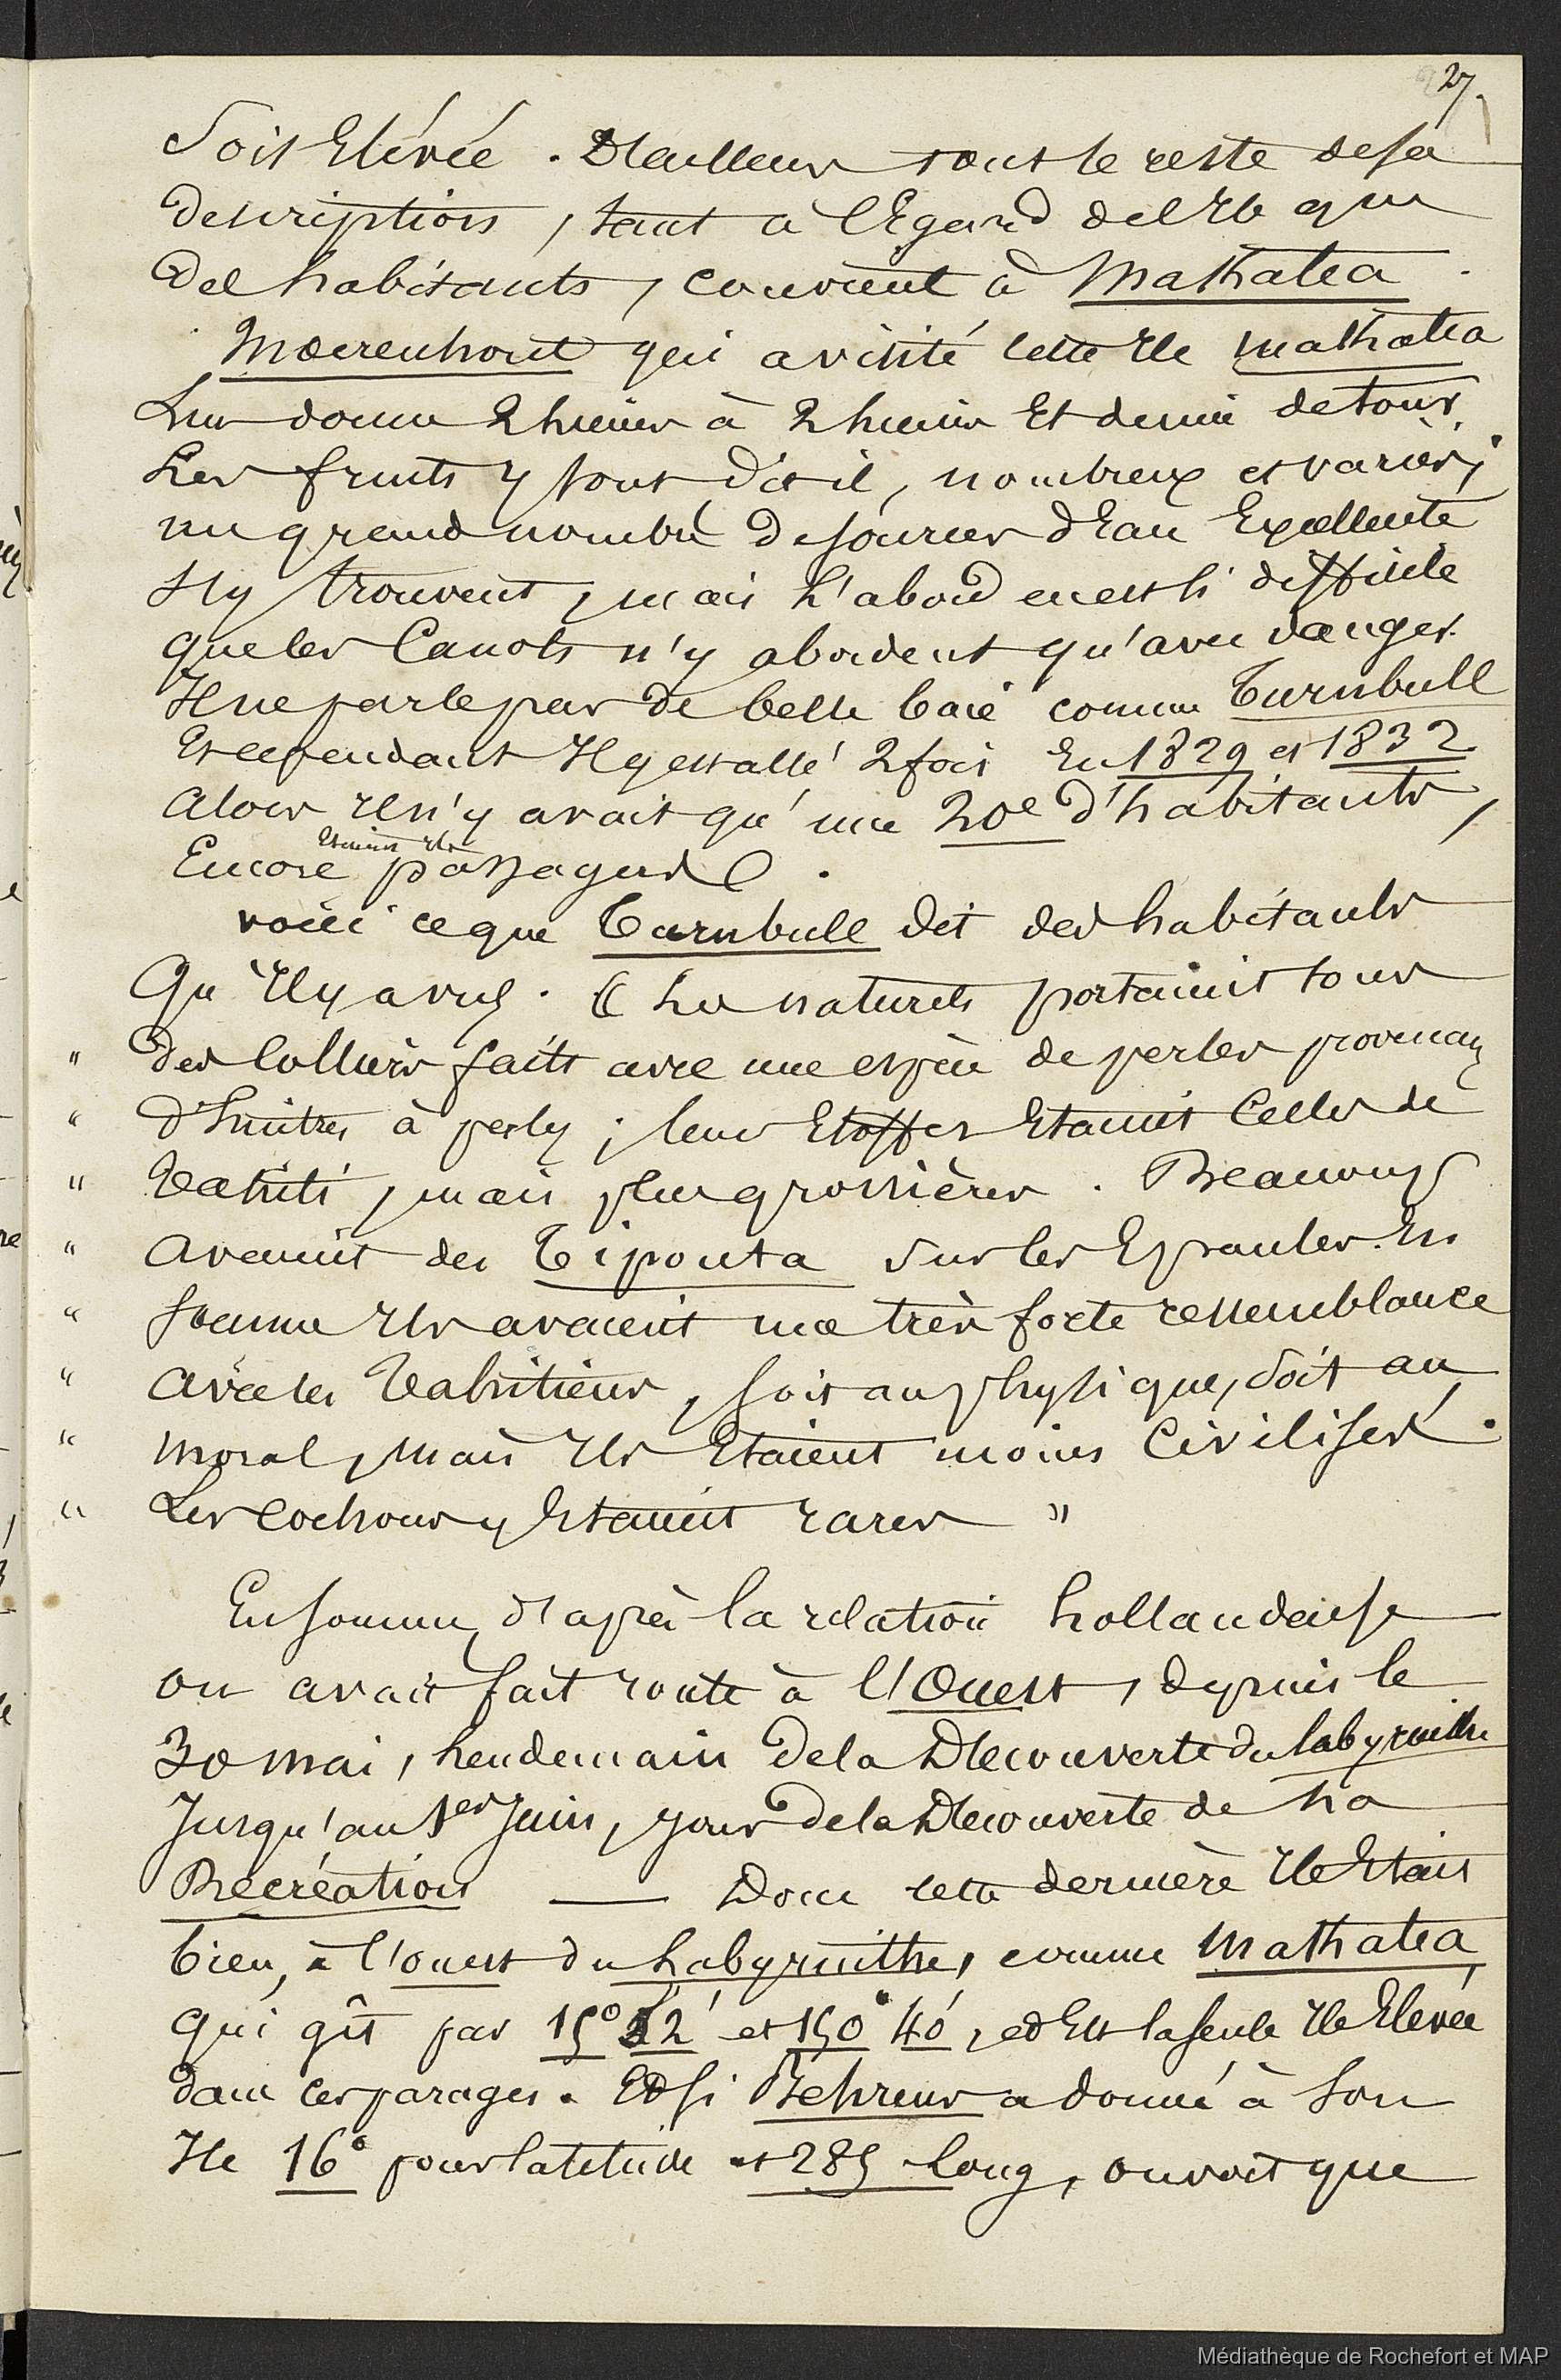 27.
Soit Elévée. D'ailleurs tout le reste de sa
description, tant à l'Egard de l'Ile que
des habitants, convient à Mathatea.
Moerenhout qui a visité cette Ile Mathatea
Lui donne 2 lieues à 2 lieues Et demie de tour.
Les fruits y sont dit il, nombreux et variés;
un grand nombre de sources d'Eau Excellente
s'y trouvent, mais l'abord en est si difficile
que les Canots n'y abordent qu'avec danger.
Il ne parle pas de belle baie comme Turnbull
Et cependant Il y est allé 2 fois En 1829 et 1832
alors Il n'y avait qu'une 20e d'habitants,
Encore Etaient Ils passagers.
voici ce que Turnbull dit des habitants
Qu'Il y a vus. « Les naturels portaient tous
" des Colliers faits avec une espèce de perles provenant
" d'huitres à perles; leurs Etoffes Etaient Celles de
" Tahiti, mais plus grossières. Beaucoup
" avaient des Tipouta sur les Epaules. En
" somme Ils avaient une très forte ressemblance
" avec les Tahitiens, soit au physique, soit au
" moral, mais Ils Etaient moins Civilisés.
" Les Cochons y Etaient rares "
En somme, d'après la relation hollandaise
on avait fait route à l'Ouest, depuis le
30 mai, Lendemain de la Découverte du labyrinthe
Jusqu'au 1er Juin, jour de la Découverte de La
Récréation — Donc cette dernière Ile Etait
bien, à l'ouest du Labyrinthe, comme Mathatea
qui gît par 15° 52' et 150° 40', et Est la seule Ile Elevée
dans ces parages. Et si Behrens a donné à son
Ile 16° pour latitude et 285 long, on voit que
Médiathèque de Rochefort et MAP